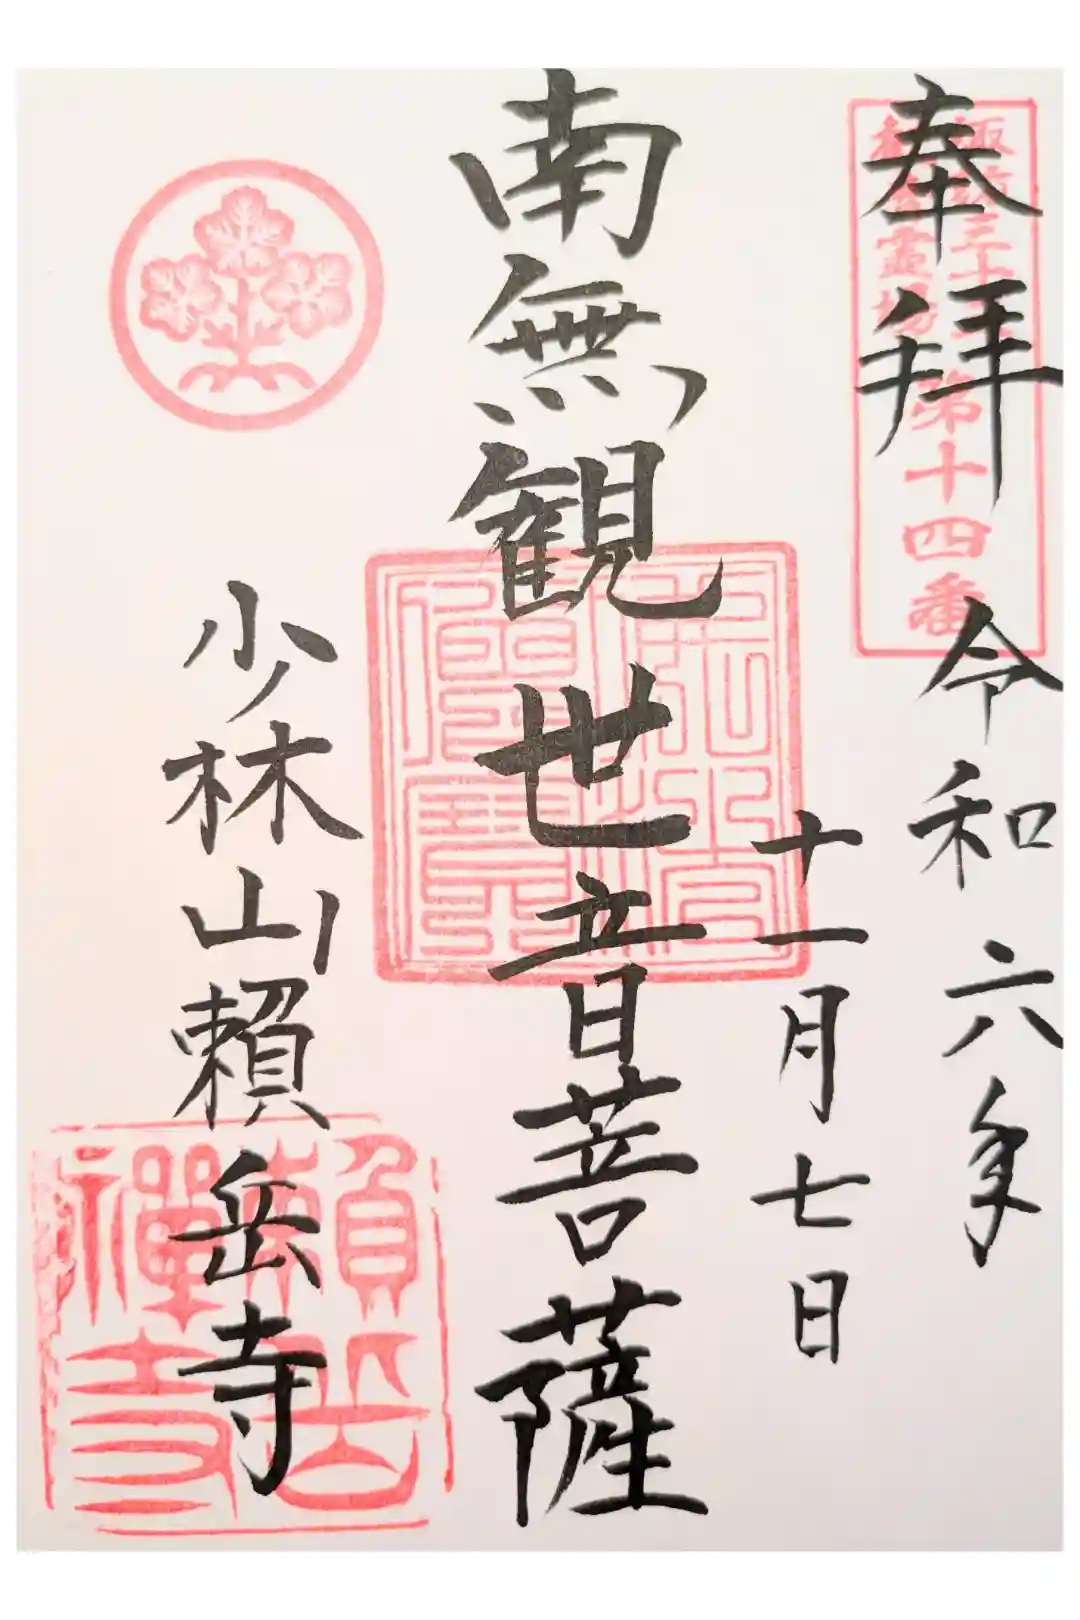 奉拝
令和六年
十一月七日
南無観世音菩薩
少林山頼岳寺
第十四番
霊場
頼岳
禅寺